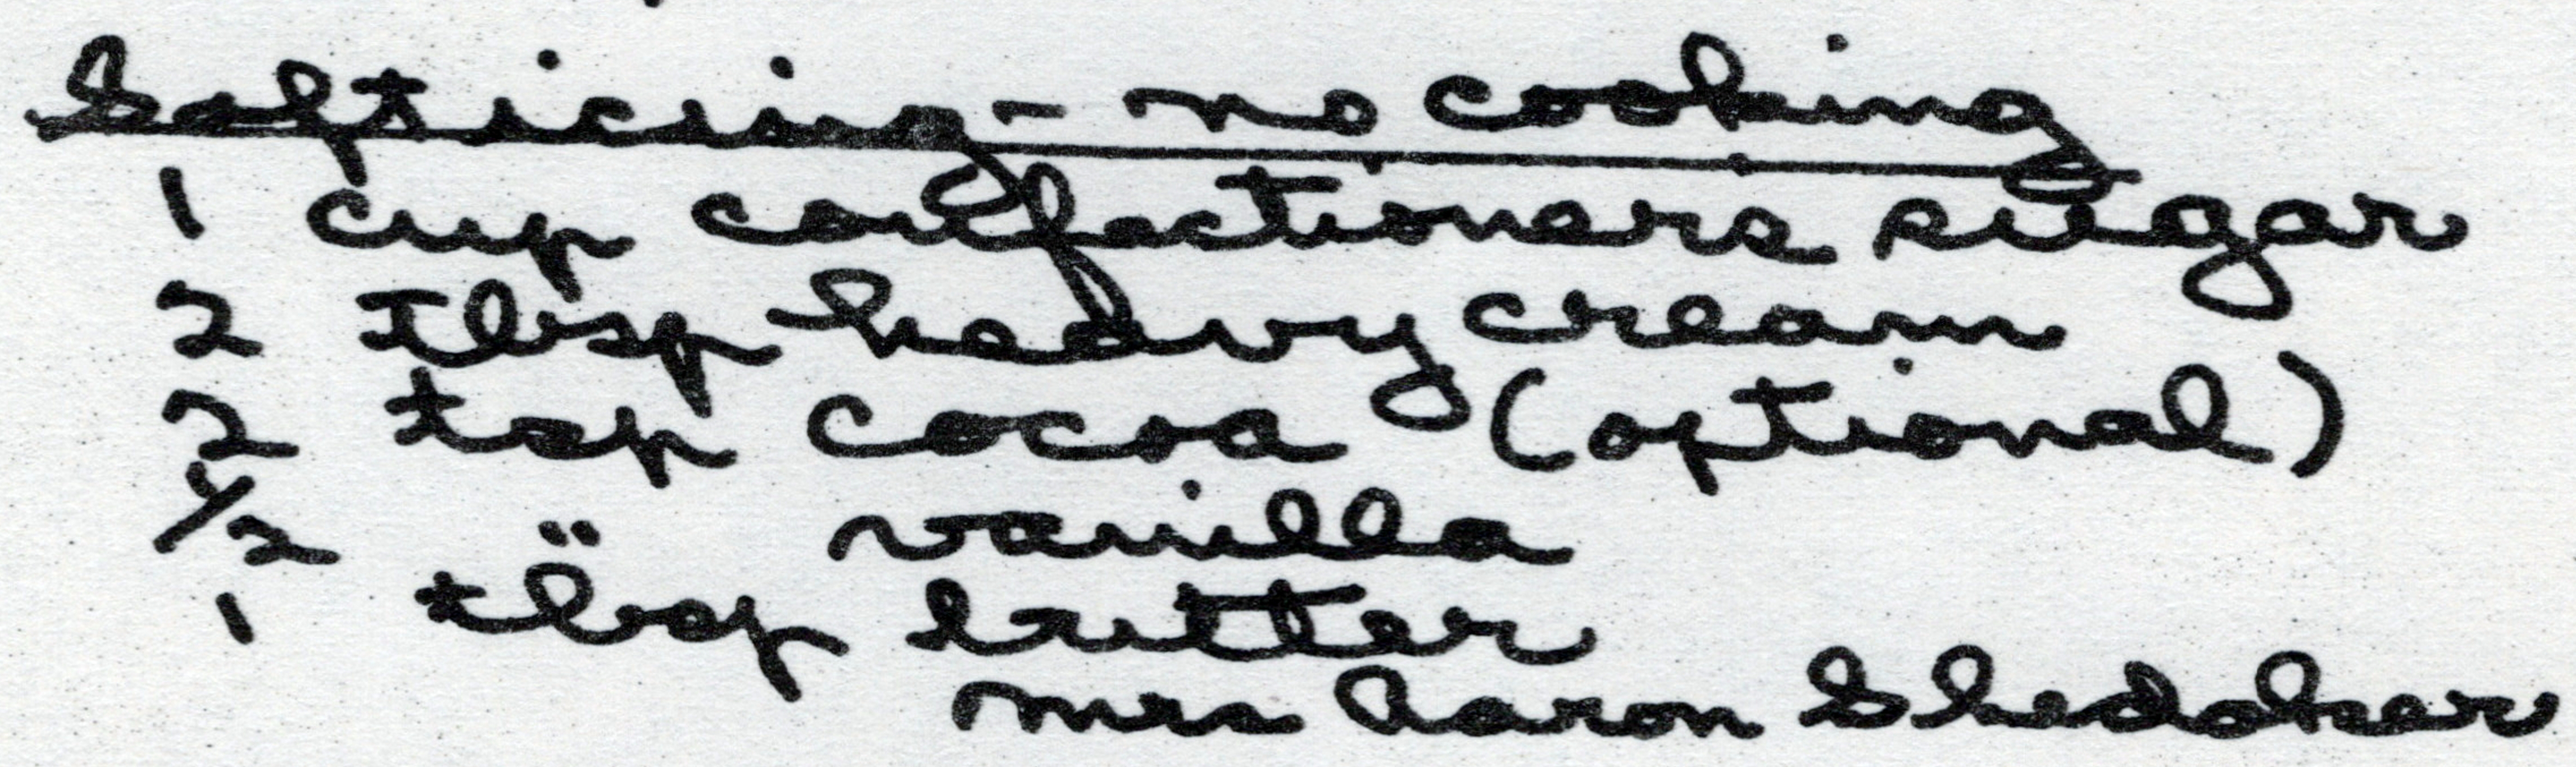 Soft icing - no cooking
1 cup confectioners sugar
2 Tbsp heavy cream
2 tsp cocoa (optional)
1/2 " vanilla
1 tbsp butter
Mrs Aaron Shedaker